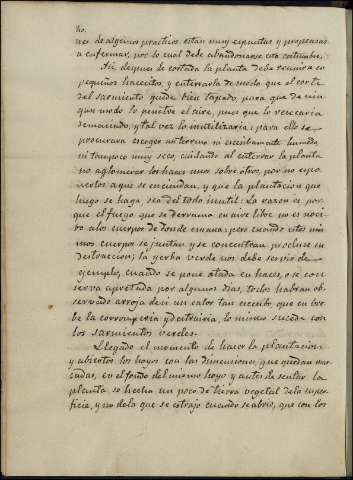 nes de algunos practicos estan muy espuestas y propensas
a enfermar, por lo cual debe abandonarse esta costumbre.
Asi despues de cortada la planta debe reunirse en
pequeños hacecitos, y enterrarla de modo que el corte
del sarmiento quede bien tapado para que de nin
gun modo lo penetre el aire, pues que lo resecaria
demasiado, y tal vez lo inutilizaria: para ello se
procurara escoger un terreno ni escesivamente humedo,
ni tampoco muy seco, cuidando al enterrar la planta
no aglomerar los haces unos sobre otros, por no espo
nerlos a que se enciendan, y que la plantacion que
luego se haga, sea del todo inutil: La razon es por
que el fuego que se derrama en aire libre no es noci
bo a los cuerpos de donde emana; pero cuando estos mis
mos cuerpos se juntan y se concentran produce su
destruccion; la yerba verde nos debe servir de
ejemplo, cuando se pone atada en haces, o se con
serva apretada por algunos dias, todos habran ob
servado arroja de si un calor tan escesibo que en bre
be la corromperia y destruiria, lo mismo sucede con
los sarmientos verdes.
Llegado el momento de hacer la plantacion
y abiertos los hoyos con las dimensiones, que quedan mar
cadas, en el fondo del mismo hoyo y antes de sentar la
planta se hecha un poco de tierra vegetal de la super
ficie, y no de la que se estrajo cuando se abrio, que con los